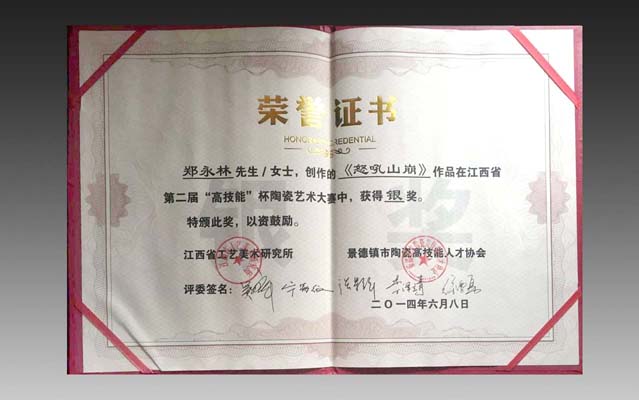 荣誉证书
HONOR CREDENTIAL
郑永林先生/女士，创作的《怒吼山崩》作品在江西省
第二届“高技能”杯陶瓷艺术大赛中，获得银奖。
特颁此奖，以资鼓励。
江西省工艺美术研究所 景德镇市陶瓷高技能人才协会
评委签名：
二〇一四年六月八日